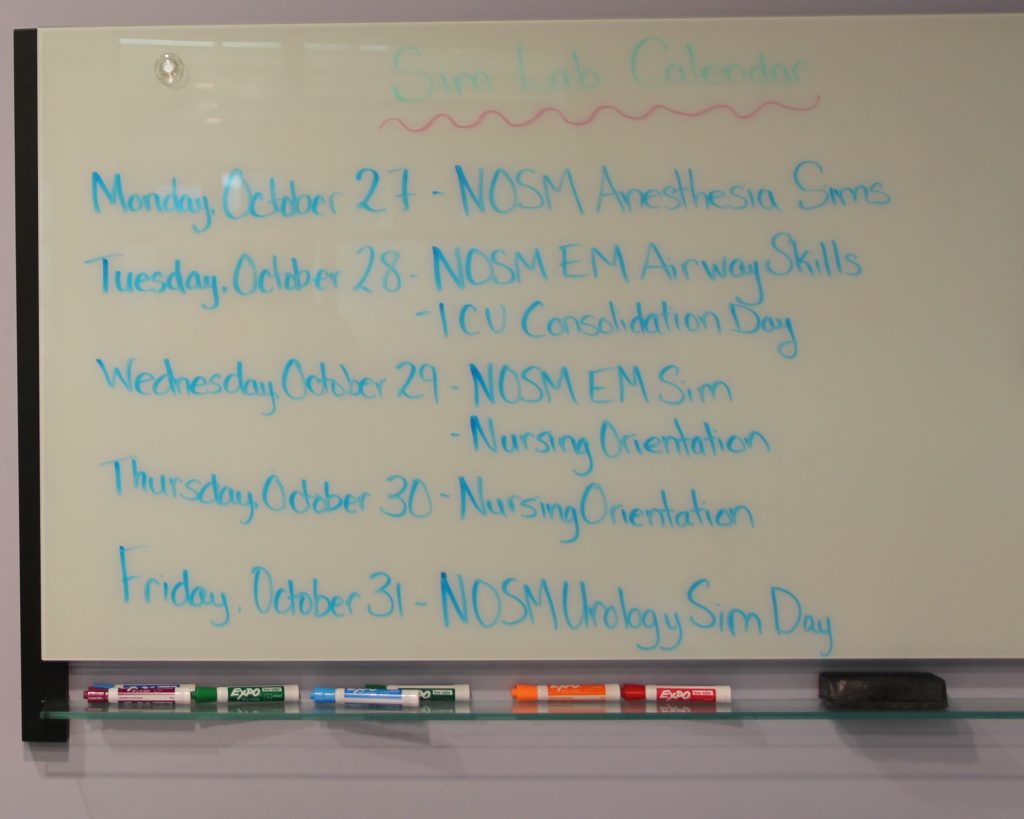 Sim Lab Calendar
Monday, October 27 - NOSM Anesthesia Sims
Tuesday, October 28 - NOSM EM Airway Skills
- ICU Consolidation Day
Wednesday, October 29 - NOSM EM Sim
- Nursing Orientation
Thursday, October 30 - Nursing Orientation
Friday, October 31 - NOSM Urology Sim Day
EXPO EXPO EXPO